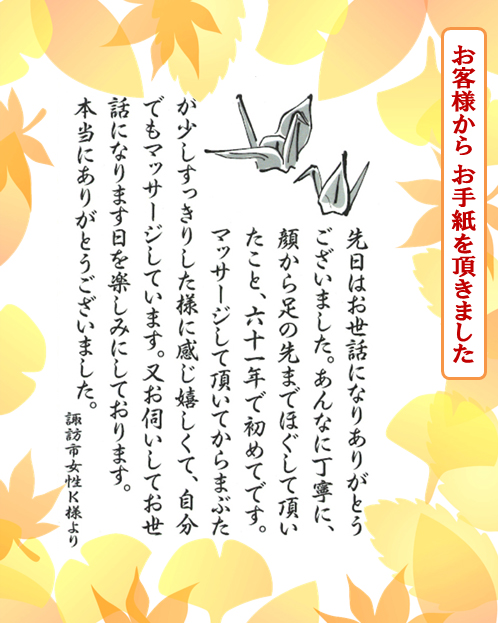 お客様から お手紙を頂きました
先日はお世話になりありがとう
ございました。あんなに丁寧に、
顔から足の先までほぐして頂い
たこと、六十一年で初めてです。
マッサージして頂いてからまぶた
が少しすっきりした様に感じ嬉しくて、自分
でもマッサージしています。又お伺いしてお世
話になります日を楽しみにしております。
本当にありがとうございました。
諏訪市女性K様より